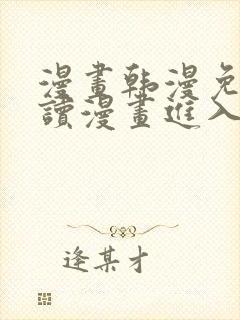 漫畫韩漫免
讀漫畫進入
逢某才